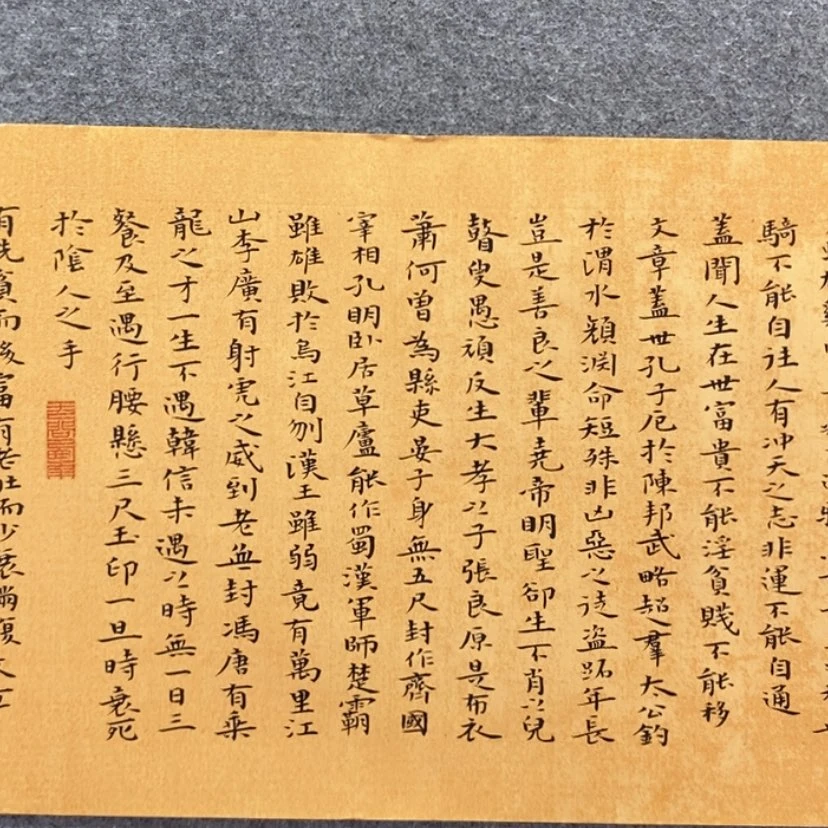 騎不能自往人有冲天之志非運不能自通
蓋聞人生在世富貴不能淫貧賤不能移
文章蓋世孔子厄於陳邦武略超羣太公釣
於渭水顏淵命短殊非凶惡之徒盜跖年長
豈是善良之輩堯帝明聖卻生不肖之兒
瞽叟愚頑反生大孝之子張良原是布衣
蕭何曾為縣吏晏子身無五尺封作齊國
宰相孔明臥居草廬能作蜀漢軍師楚霸
雖雄敗於烏江自刎漢王雖弱竟有萬里江
山李廣有射虎之威到老無封馮唐有乘
龍之才一生不遇韓信未遇之時無一日三
餐及至遇行腰懸三尺玉印一旦時衰死
於陰人之手
有先貧而後富有老壯而少衰滿腹文